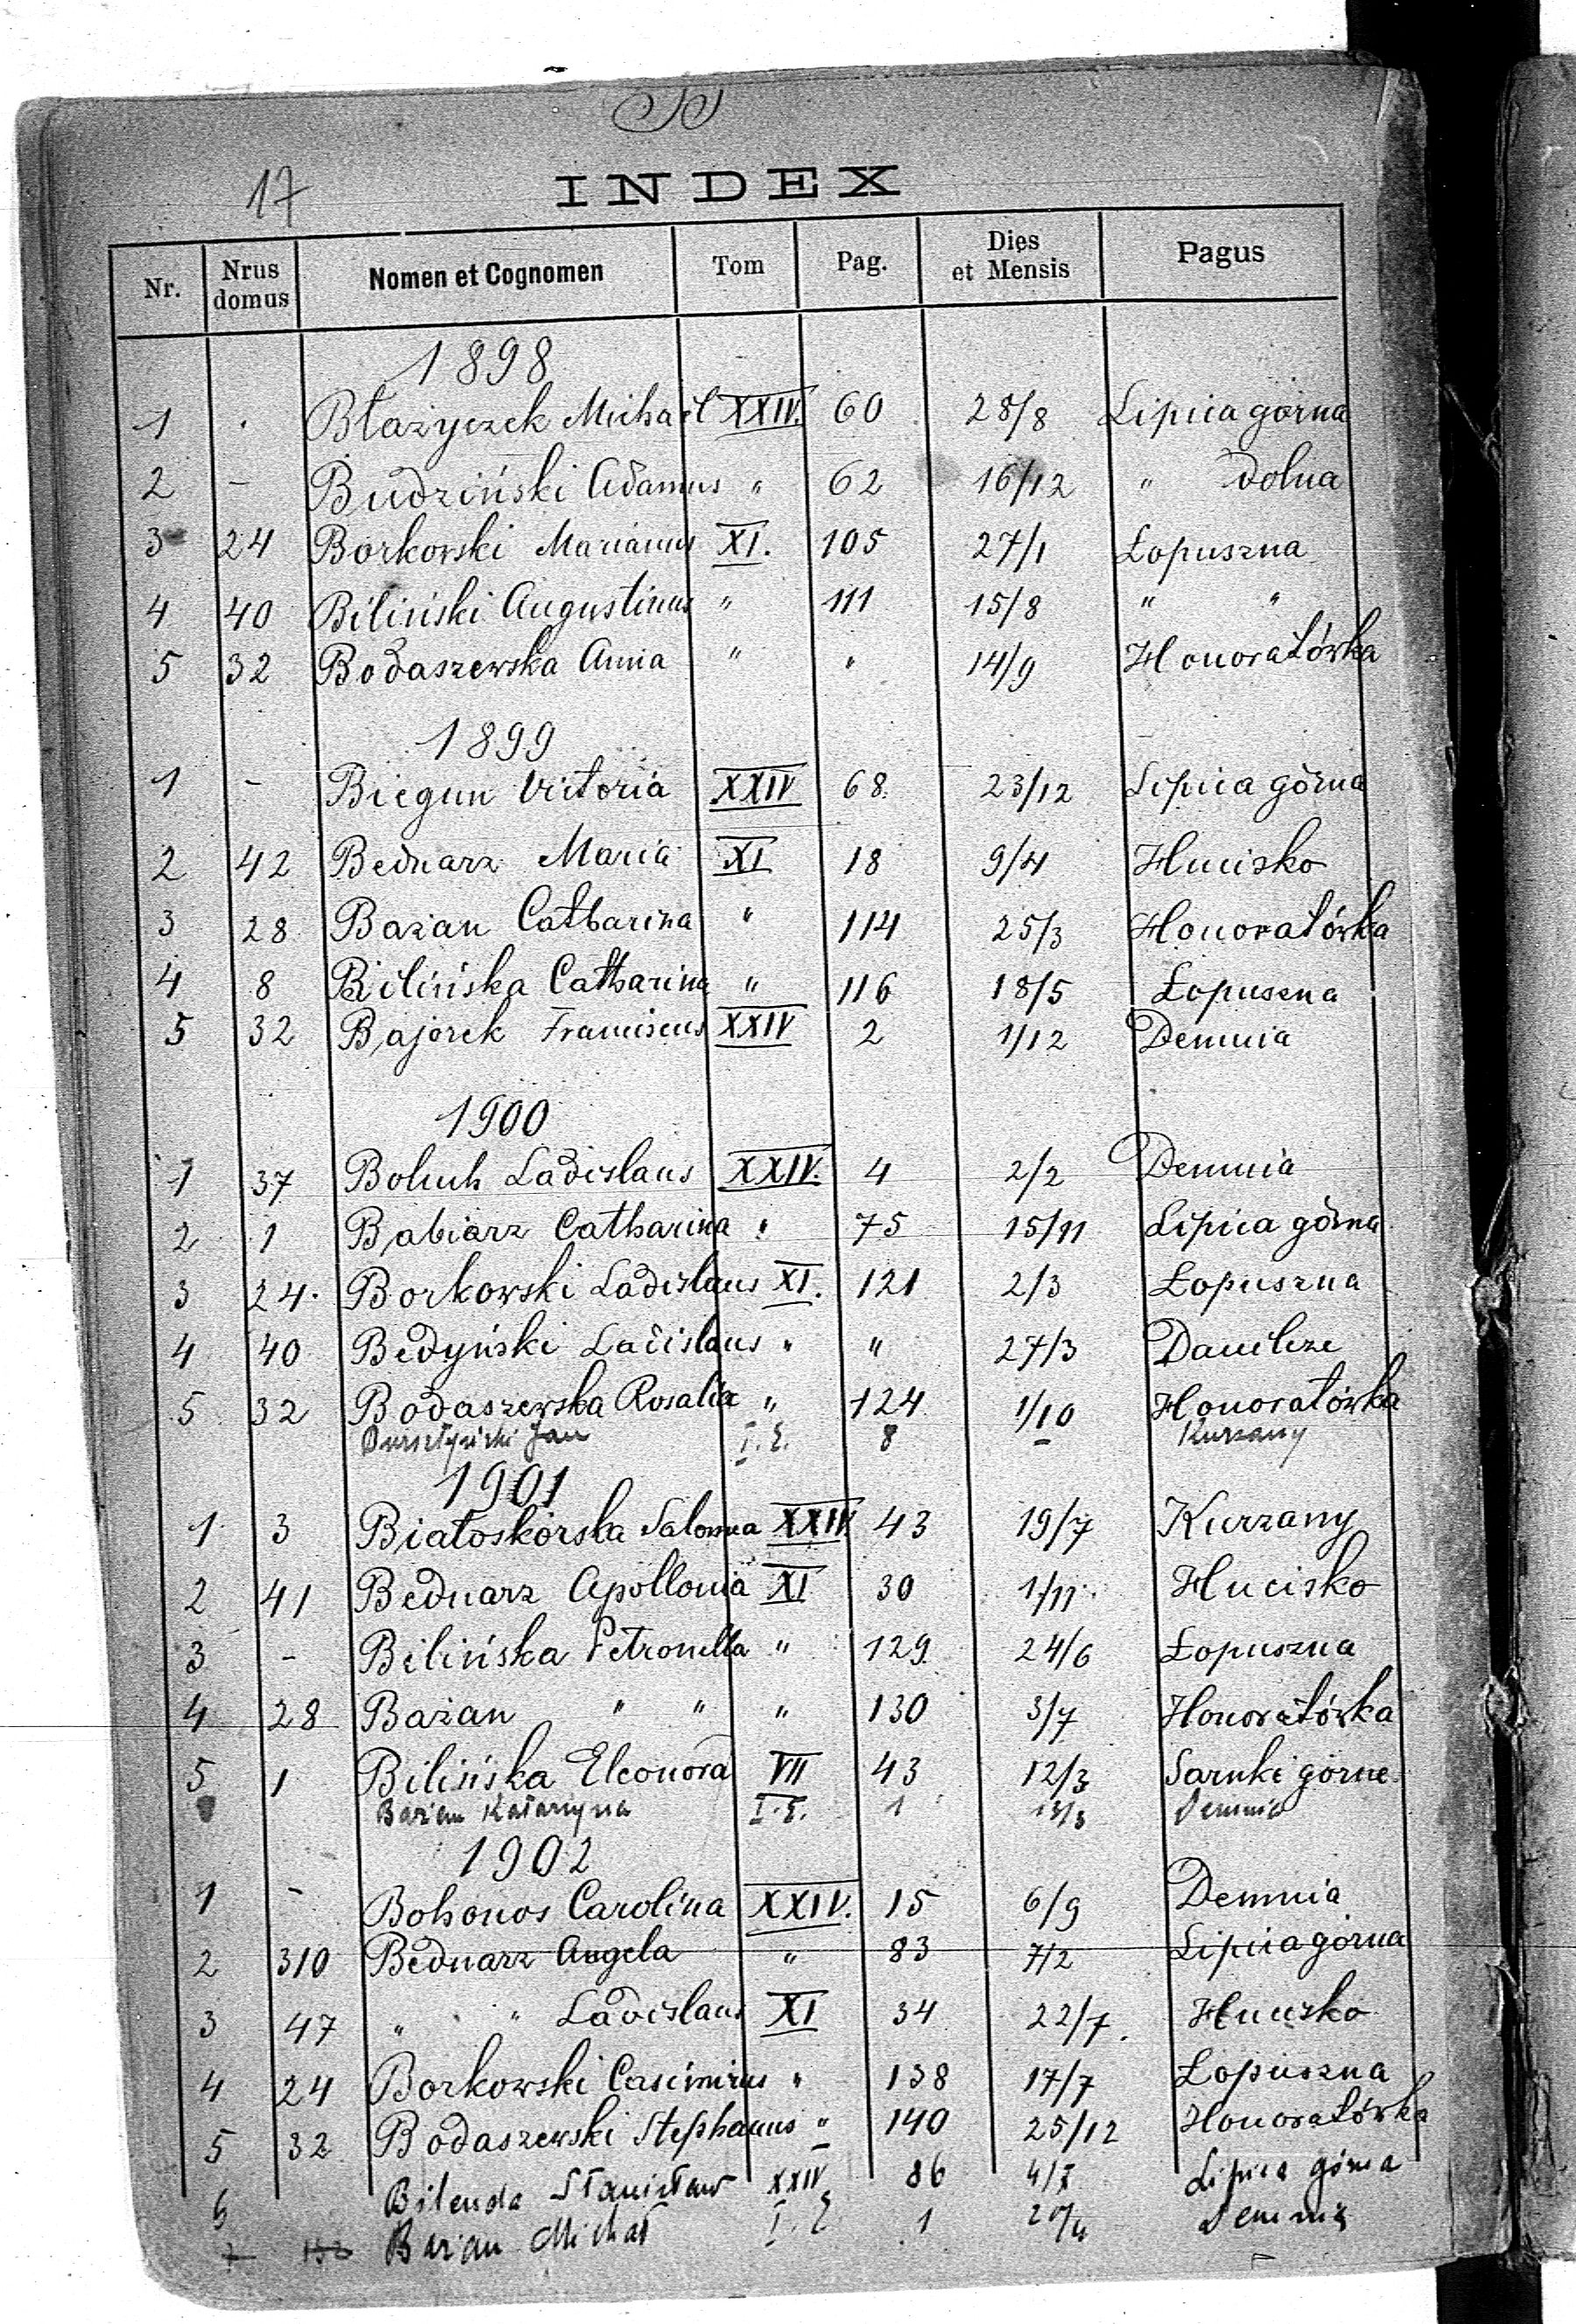 17
INDEX
Nr. Nrus domus Nomen et Cognomen Tom Pag. Dies et Mensis Pagus
1898
1 . Błażyczek Michael XXIV. 60 28/8 Lipica górna
2 – Budziński Adamus " 62 16/12 " dolna
3 24 Borkowski Marianus XI. 105 27/1 Łopuszna
4 40 Biliński Augustinus " 111 15/8 " "
5 32 Bodaszewska Anna " " 14/9 Honoratówka
1899
1 – Biegun Victoria XXIV 68. 23/12 Lipica górna
2 42 Bednarz Maria XI 18 9/4 Hucisko
3 28 Bażan Catharina " 114 25/3 Honoratówka
4 8 Bilińska Catharina " 116 18/5 Łopuszna
5 32 Bajorek Franciscus XXIV 2 1/12 Demnia
1900
1 37 Ladislaus XXIV. 4 2/2 Demnia
2 1 Babiarz Catharina " 75 15/11 Lipica górna
3 24. Borkowski Ladislaus XI. 121 2/3 Łopuszna
4 40 Bedyński Ladislaus " " 27/3 Danilcze
5 32 Bodaszewska Rosalia " 124 1/10 Honoratówka
Jan I. E. 8 – Kurzany
1901
1 3 Białoskórska Salomea XXIV 43 19/7 Kurzany
2 41 Bednarz Apollonia XI 30 1/11. Hucisko
3 – Bilińska Petronella " 129. 24/6 Łopuszna
4 28 Bażan " " " 130 3/7 Honoratówka
5 1 Bilińska Eleonora VII 43 12/3 Sarnki górne
Bażan Katarzyna I. E. 1 13/3 Demnia
1902
1 – Bohonos Carolina XXIV. 15 6/9 Demnia
2 310 Bednarz Angela " 83 7/2 Lipica górna
3 47 " " Ladislaus XI 34 22/7. Hucisko
4 24 Borkowski Casimirus " 138 17/7 Łopuszna
5 32 Bodaszewski Stephanus " 140 25/12 Honoratówka
6 Bilenda Stanisław XXIV 86 Lipica górna
7 Bażan Michał I. E 1 Demnia